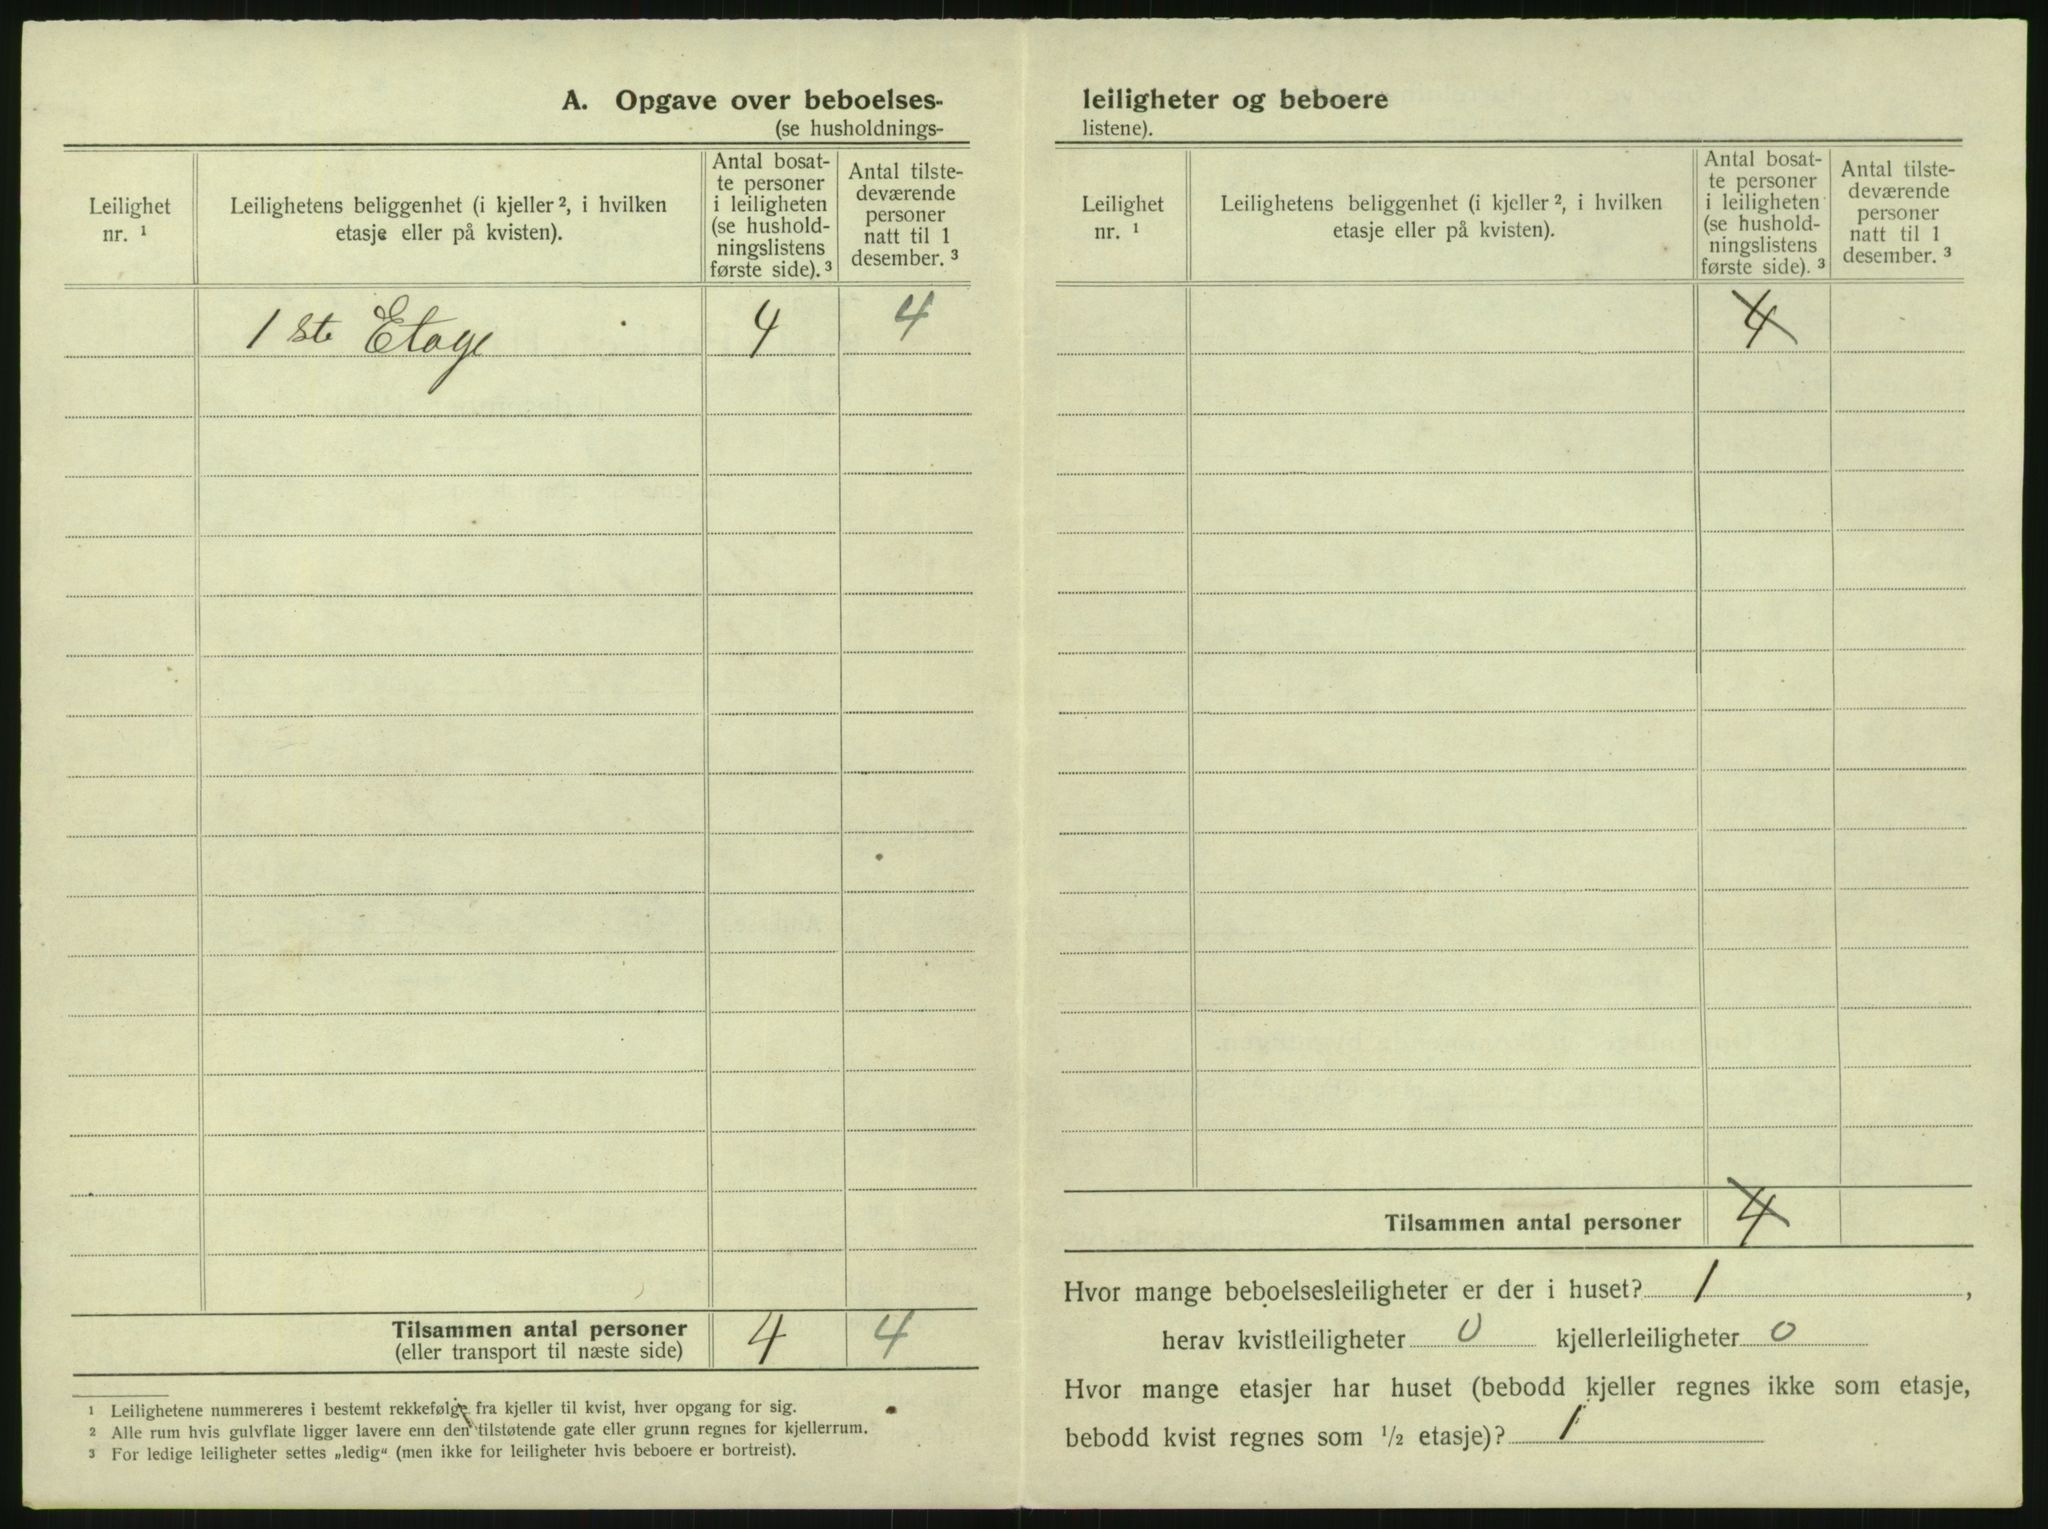 A. Opgave over beboelses-
(se husholdnings-
Leilighet
nr. ¹
Leilighetens beliggenhet (i kjeller ², i hvilken
etasje eller på kvisten).
Antal bosat-
te personer
i leiligheten
(se hushold-
ningslistens
første side). ³
Antal tilste-
deværende
personer
natt til 1
desember. ³
1 ste Etage 4 4
Tilsammen antal personer 4 4
(eller transport til næste side)
¹ Leilighetene nummereres i bestemt rekkefølge fra kjeller til kvist, hver opgang for sig.
² Alle rum hvis gulvflate ligger lavere enn den tilstøtende gate eller grunn regnes for kjellerrum.
³ For ledige leiligheter settes „ledig“ (men ikke for leiligheter hvis beboere er bortreist).
leiligheter og beboere
listene).
Leilighet
nr. ¹
Leilighetens beliggenhet (i kjeller ², i hvilken
etasje eller på kvisten).
Antal bosat-
te personer
i leiligheten
(se hushold-
ningslistens
første side). ³
Antal tilste-
deværende
personer
natt til 1
desember. ³
4
Tilsammen antal personer 4
Hvor mange beboelsesleiligheter er der i huset? 1,
herav kvistleiligheter 0 kjellerleiligheter 0
Hvor mange etasjer har huset (bebodd kjeller regnes ikke som etasje,
bebodd kvist regnes som ½ etasje)? 1